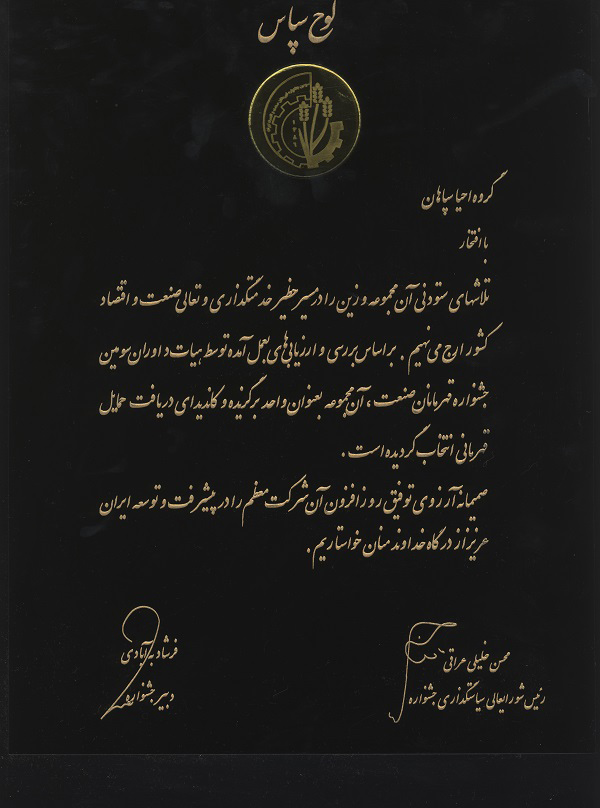 لوح سپاس
۱۳۸۲
گروه احیا سپاهان
با افتخار
تلاشهای ستودنی آن مجموعه وزین را در مسیر خطیر خدمتگذاری و تعالی صنعت و اقتصاد
کشور ارج می نهیم . بر اساس بررسی و ارزیابی های بعمل آمده توسط هیات داوران سومین
جشنواره قهرمانان صنعت ، آن مجموعه بعنوان واحد برگزیده و کاندیدای دریافت حمایل
قهرمانی انتخاب گردیده است .
صمیمانه آرزوی توفیق روز افزون آن شرکت معظم را در پیشرفت و توسعه ایران
عزیز از درگاه خداوند منان خواستاریم .
محسن خلیلی عراقی
رئیس شورایعالی سیاستگذاری جشنواره
فرشاد به آبادی
دبیر جشنواره